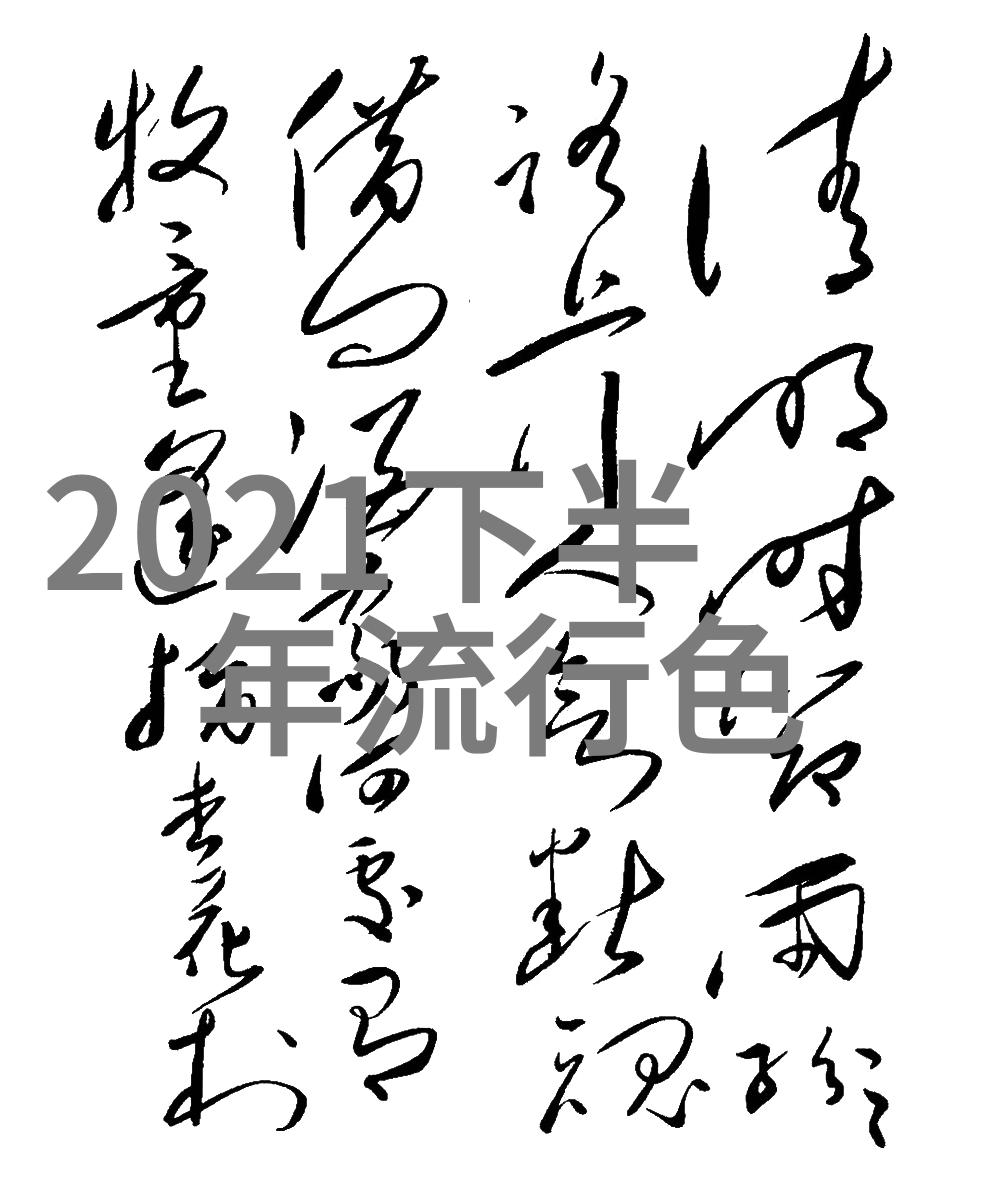 清明时节雨纷纷
路上行人欲断魂
借问酒家何处有
牧童遥指杏花村
2021下半
年流行色